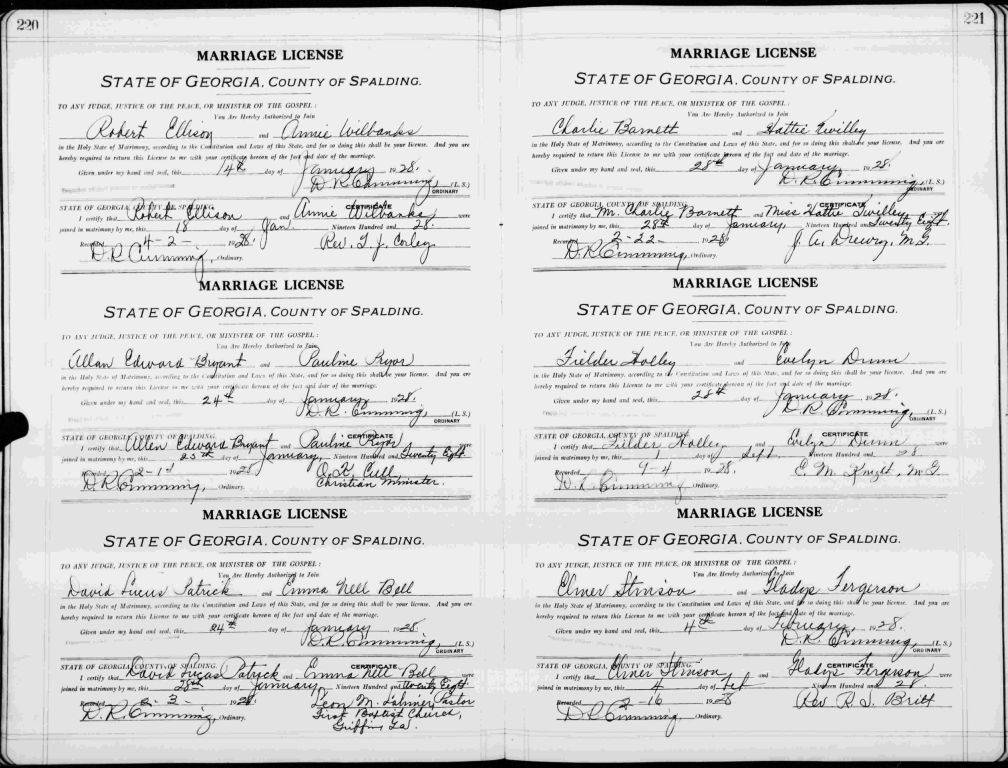 220
MARRIAGE LICENSE
STATE OF GEORGIA, COUNTY OF SPALDING.
TO ANY JUDGE, JUSTICE OF THE PEACE, OR MINISTER OF THE GOSPEL:
You Are Hereby Authorized to Join
Robert Ellison and Annie Wilbanks
in the Holy State of Matrimony, according to the Constitution and Laws of this State, and for so doing this shall be your license. And you are
hereby required to return this License to me with your certificate hereon of the fact and date of the marriage.
Given under my hand and seal, this 14th day of January 1928.
D. R. Cumming, (L. S.)
ORDINARY
CERTIFICATE
STATE OF GEORGIA, COUNTY OF SPALDING.
I certify that Robert Ellison and Annie Wilbanks were
joined in matrimony by me, this 18 day of Jan Nineteen Hundred and 28.
Recorded 4-2- 1928. Rev. T. J. Corley
D. R. Cumming, Ordinary.
MARRIAGE LICENSE
STATE OF GEORGIA, COUNTY OF SPALDING.
TO ANY JUDGE, JUSTICE OF THE PEACE, OR MINISTER OF THE GOSPEL:
You Are Hereby Authorized to Join
Allan Edward Bryant and Pauline Pryor
in the Holy State of Matrimony, according to the Constitution and Laws of this State, and for so doing this shall be your license. And you are
hereby required to return this License to me with your certificate hereon of the fact and date of the marriage.
Given under my hand and seal, this 24th day of January 1928.
D. R. Cumming, (L. S.)
ORDINARY
CERTIFICATE
STATE OF GEORGIA, COUNTY OF SPALDING.
I certify that Allen Edward Bryant and Pauline Pryor were
joined in matrimony by me, this 25th day of January, Nineteen Hundred and Twenty Eight
Recorded 2-1- 1928
D. R. Cumming, Ordinary. Christian Minister.
MARRIAGE LICENSE
STATE OF GEORGIA, COUNTY OF SPALDING.
TO ANY JUDGE, JUSTICE OF THE PEACE, OR MINISTER OF THE GOSPEL:
You Are Hereby Authorized to Join
David Lucus Patrick and Emma Nell Bell
in the Holy State of Matrimony, according to the Constitution and Laws of this State, and for so doing this shall be your license. And you are
hereby required to return this License to me with your certificate hereon of the fact and date of the marriage.
Given under my hand and seal, this 24th day of January 1928.
D. R. Cumming, (L. S.)
ORDINARY
CERTIFICATE
STATE OF GEORGIA, COUNTY OF SPALDING.
I certify that David Lucas Patrick and Emma Nell Bell were
joined in matrimony by me, this 28th day of January Nineteen Hundred and Twenty Eight
Recorded 2-3- 1928. Leon M. Latimer, Pastor
D. R. Cumming, Ordinary. First Baptist Church,
Griffin, Ga.
221
MARRIAGE LICENSE
STATE OF GEORGIA, COUNTY OF SPALDING.
TO ANY JUDGE, JUSTICE OF THE PEACE, OR MINISTER OF THE GOSPEL:
You Are Hereby Authorized to Join
Charlie Barnett and Hattie Twilley
in the Holy State of Matrimony, according to the Constitution and Laws of this State, and for so doing this shall be your license. And you are
hereby required to return this License to me with your certificate hereon of the fact and date of the marriage.
Given under my hand and seal, this 28th day of January 1928.
D. R. Cumming, (L. S.)
ORDINARY
CERTIFICATE
STATE OF GEORGIA, COUNTY OF SPALDING.
I certify that Mr. Charlie Barnett and Miss Hattie Twilley were
joined in matrimony by me, this 28th day of January, Nineteen Hundred and Twenty Eight.
Recorded 2-22- 1928 J. A. Drewry, M. G.
D. R. Cumming, Ordinary.
MARRIAGE LICENSE
STATE OF GEORGIA, COUNTY OF SPALDING.
TO ANY JUDGE, JUSTICE OF THE PEACE, OR MINISTER OF THE GOSPEL:
You Are Hereby Authorized to Join
Fielder Holley and Evelyn Dunn
in the Holy State of Matrimony, according to the Constitution and Laws of this State, and for so doing this shall be your license. And you are
hereby required to return this License to me with your certificate hereon of the fact and date of the marriage.
Given under my hand and seal, this 28th day of January 1928.
D. R. Cumming, (L. S.)
ORDINARY
CERTIFICATE
STATE OF GEORGIA, COUNTY OF SPALDING.
I certify that Filder Holley and Evelyn Dunn were
joined in matrimony by me, this 1 day of Sept. Nineteen Hundred and 28
Recorded 9-4 1928. E. M. Knight, M. G.
D. R. Cumming Ordinary.
MARRIAGE LICENSE
STATE OF GEORGIA, COUNTY OF SPALDING.
TO ANY JUDGE, JUSTICE OF THE PEACE, OR MINISTER OF THE GOSPEL:
You Are Hereby Authorized to Join
Elmer Stinson and Gladys Fergerson
in the Holy State of Matrimony, according to the Constitution and Laws of this State, and for so doing this shall be your license. And you are
hereby required to return this License to me with your certificate hereon of the fact and date of the marriage.
Given under my hand and seal, this 4th day of February 1928.
D. R. Cumming, (L. S.)
ORDINARY
CERTIFICATE
STATE OF GEORGIA, COUNTY OF SPALDING.
I certify that Elmer Stinson and Gladys Ferguson were
joined in matrimony by me, this 4 day of Feb Nineteen Hundred and 28
Recorded 2-16 1928 Rev R. S. Britt
D. R. Cumming, Ordinary.